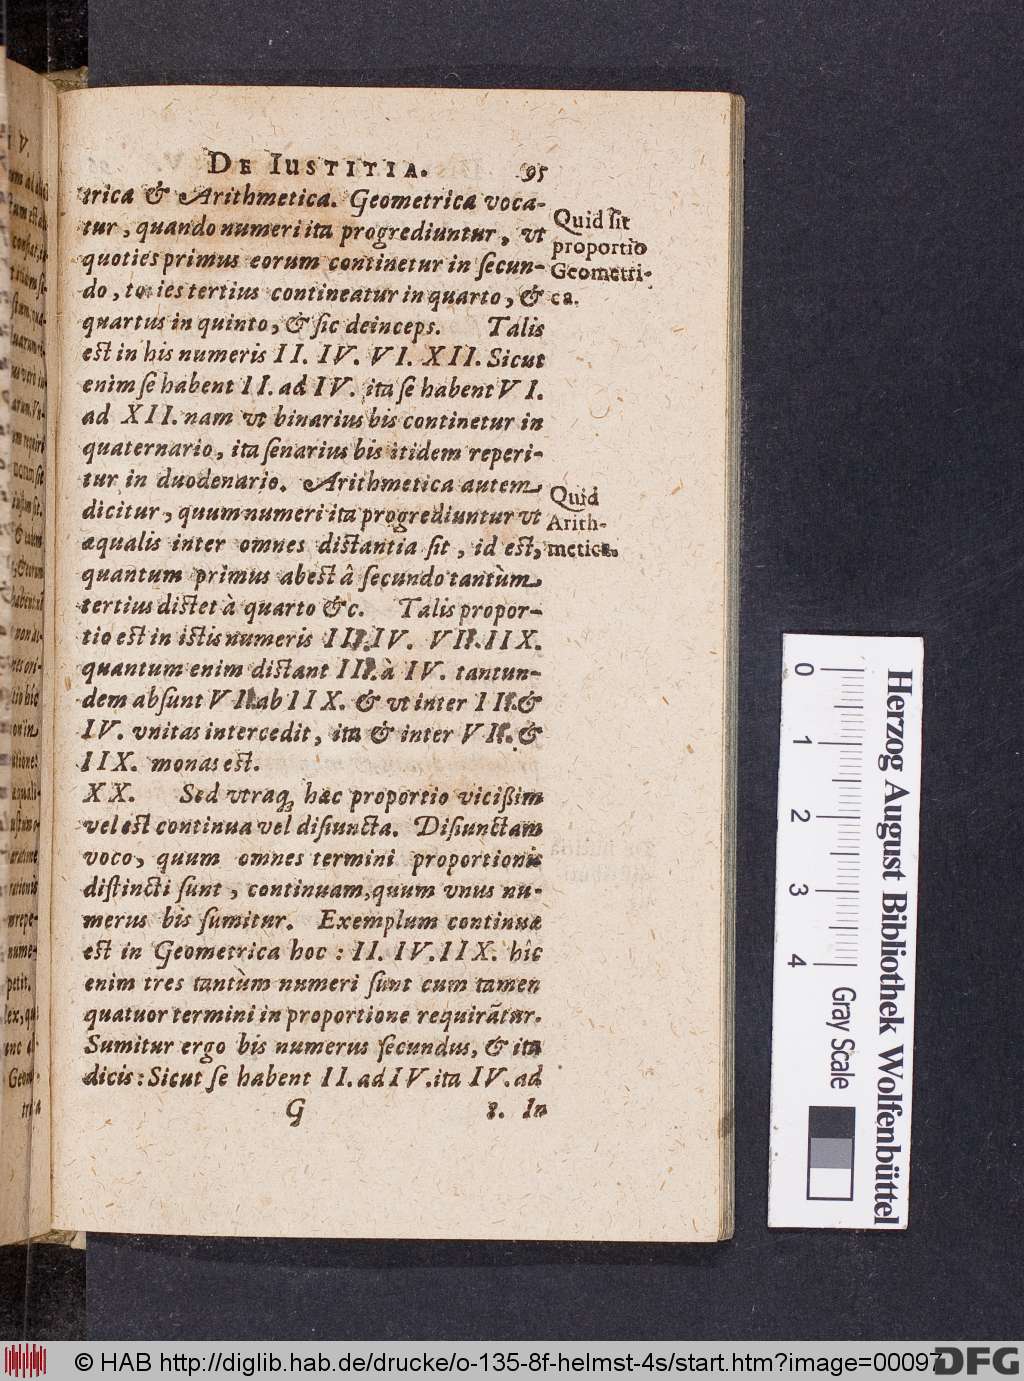 DE IUSTITIA. 95
trica & Arithmetica. Geometrica voca-
tur, quando numeri ita progrediuntur, vt
quoties primus eorum continetur in secun-
do, toties tertius contineatur in quarto, &
quartus in quinto, & sic deinceps. Talis
est in his numeris II. IV. VI. XII. Sicut
enim se habent II. ad IV. ita se habent VI.
ad XII. nam vt binarius bis continetur in
quaternario, ita senarius bis itidem reperi-
tur in duodenario. Arithmetica autem
dicitur, quum numeri ita progrediuntur vt
æqualis inter omnes distantia sit, id est,
quantum primus abest â secundo tantùm
tertius distet à quarto &c. Talis propor-
tio est in istis numeris III. IV. VII. IIX.
quantum enim distant III. à IV. tantun-
dem absunt VII. ab IIX. & vt inter III. &
IV. vnitas intercedit, ita & inter VII. &
IIX. monas est.
XX. Sed vtraq; hæc proportio vicißim
vel est continua vel disiuncta. Disiunctam
voco, quum omnes termini proportionis
distincti sunt, continuam, quum vnus nu-
merus bis sumitur. Exemplum continuæ
est in Geometrica hoc: II. IV. IIX. hîc
enim tres tantùm numeri sunt cum tamen
quatuor termini in proportione requirãtur.
Sumitur ergo bis numerus secundus, & ita
dicis: Sicut se habent II. ad IV. ita IV. ad
G 8. In
Quid sit
proportio
Geometri-
ca.
Quid
Arith-
metica.
Herzog August Bibliothek Wolfenbüttel
0 1 2 3 4
Gray Scale
© HAB http://diglib.hab.de/drucke/o-135-8f-helmst-4s/start.htm?image=00097
DFG